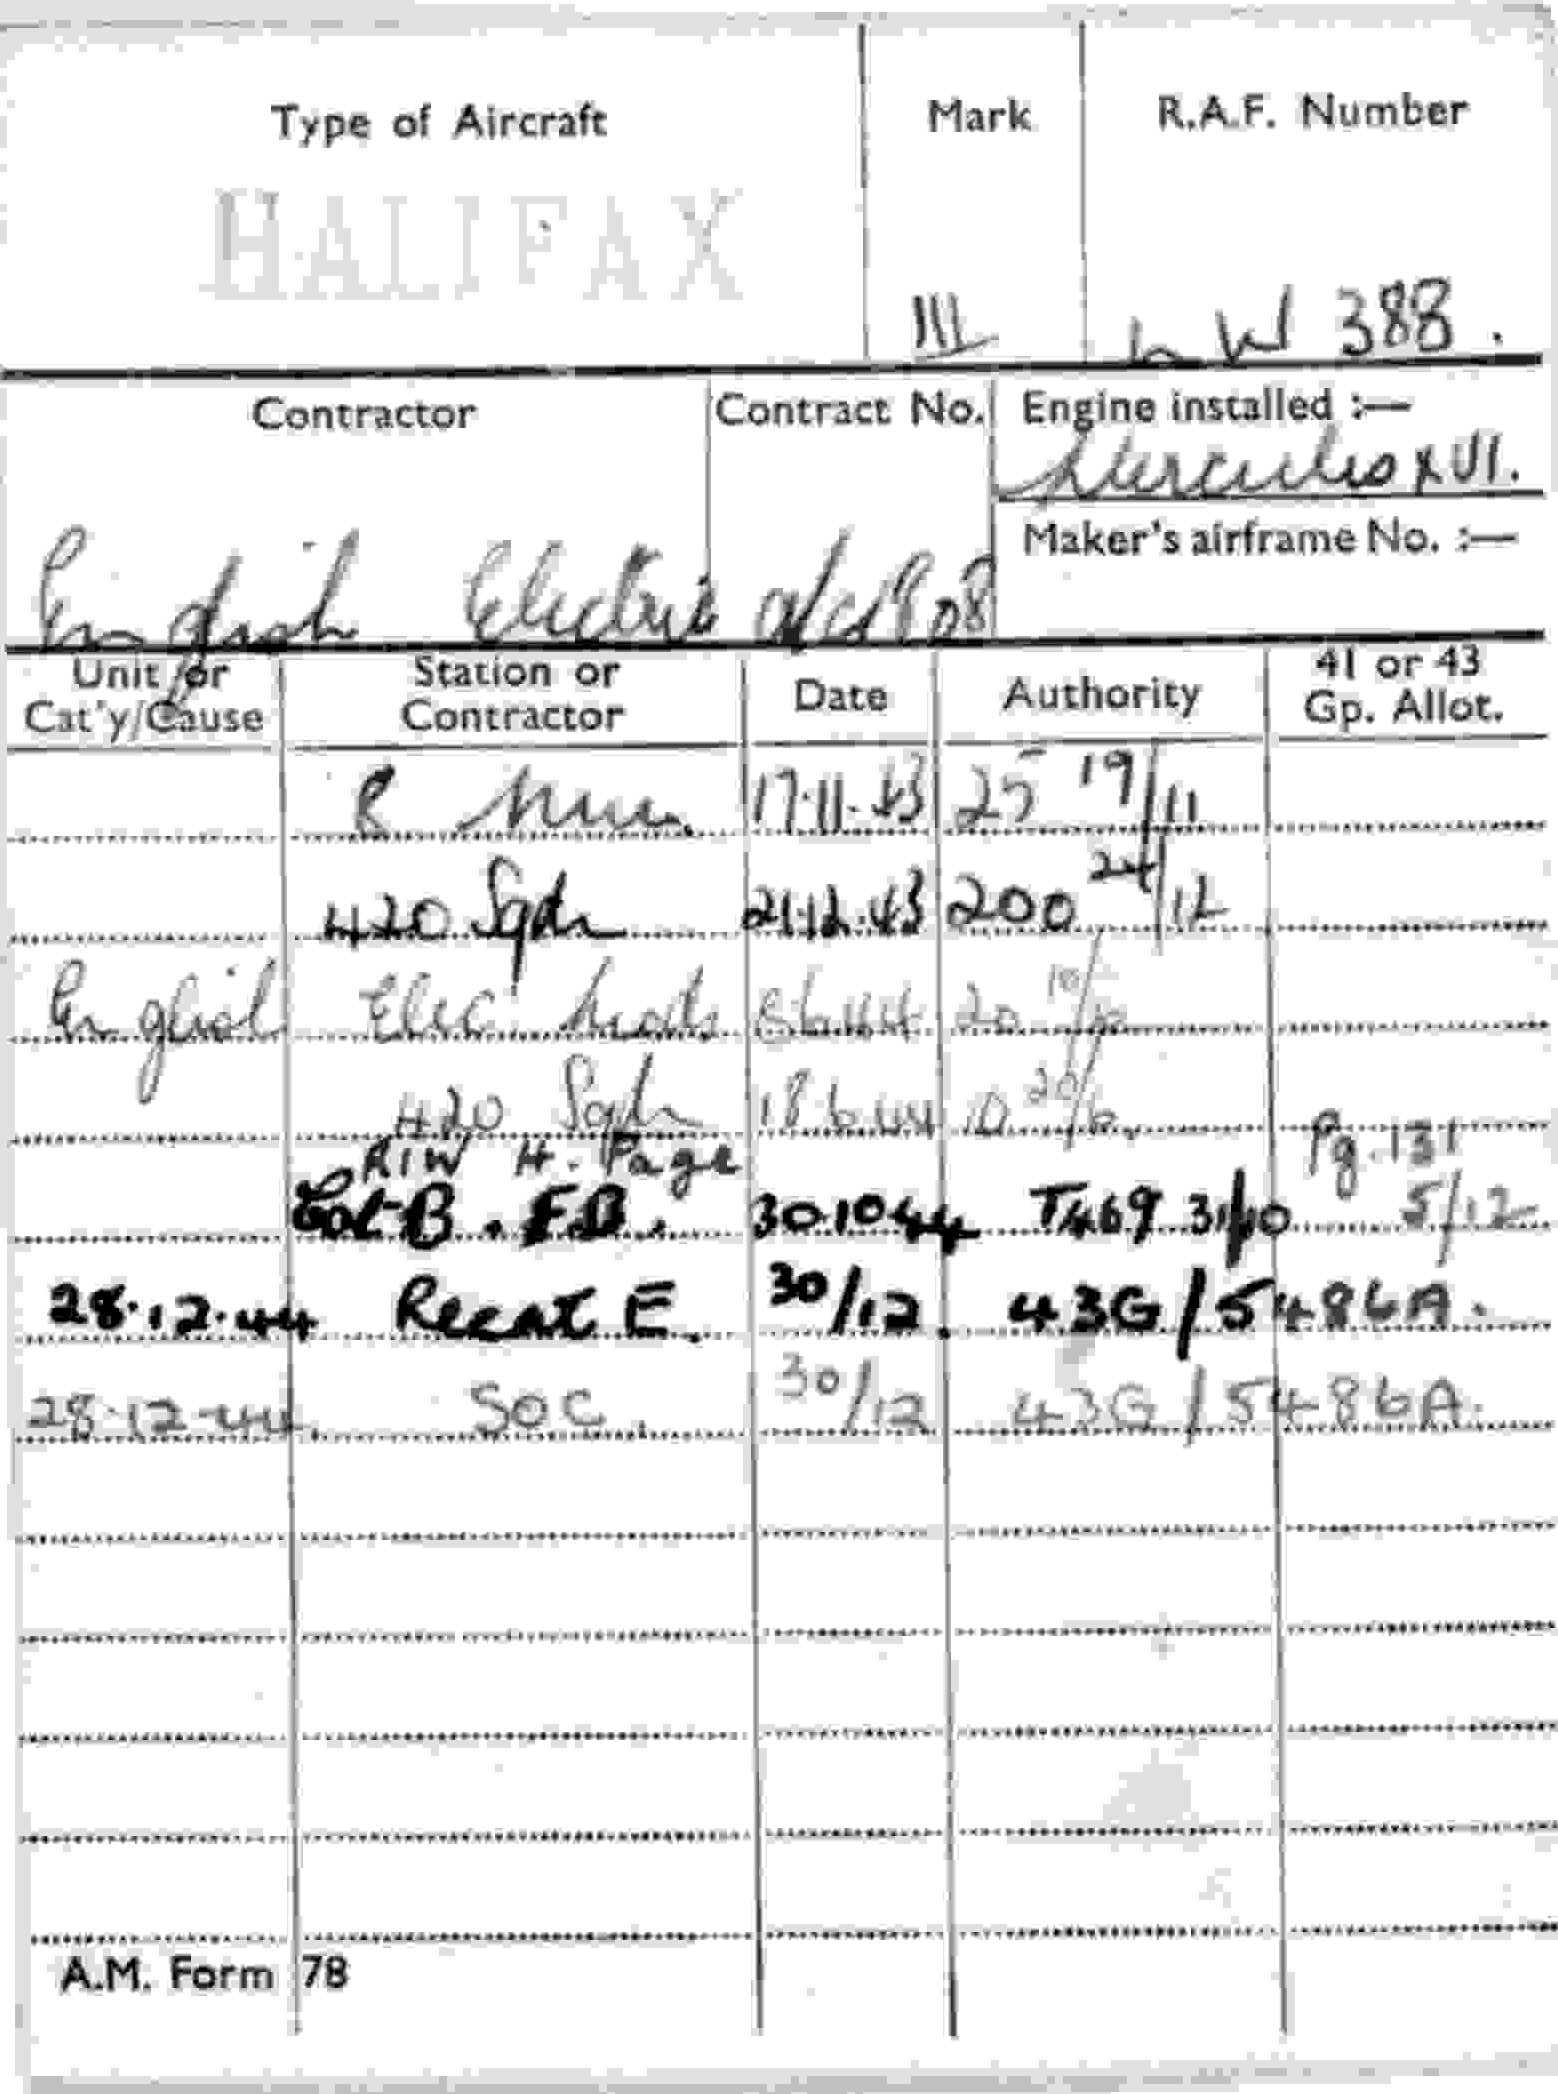 Type of Aircraft Mark R.A.F. Number
HALIFAX III LW 388.
Contractor Contract No. Engine installed :—
Hercules XVI.
Maker's airframe No. :—
English Electric
Unit or Cat'y/Cause Station or Contractor Date Authority 41 or 43 Gp. Allot.
8 17.11.43 25 19/11
420 Sqdn 21.12.43 200 24/12
English Elec 8 6 44 20 10/6
420 Sqdn 18 6 44 10 20/6.
RIW H. Page Pg. 131
Cat B. FB. 30.10 44 T469 31/10 5/12
28.12.44 Recat E. 30/12. 43G/5486A.
28.12.44 SOC. 30/12 43G/5486A.
A.M. Form 78